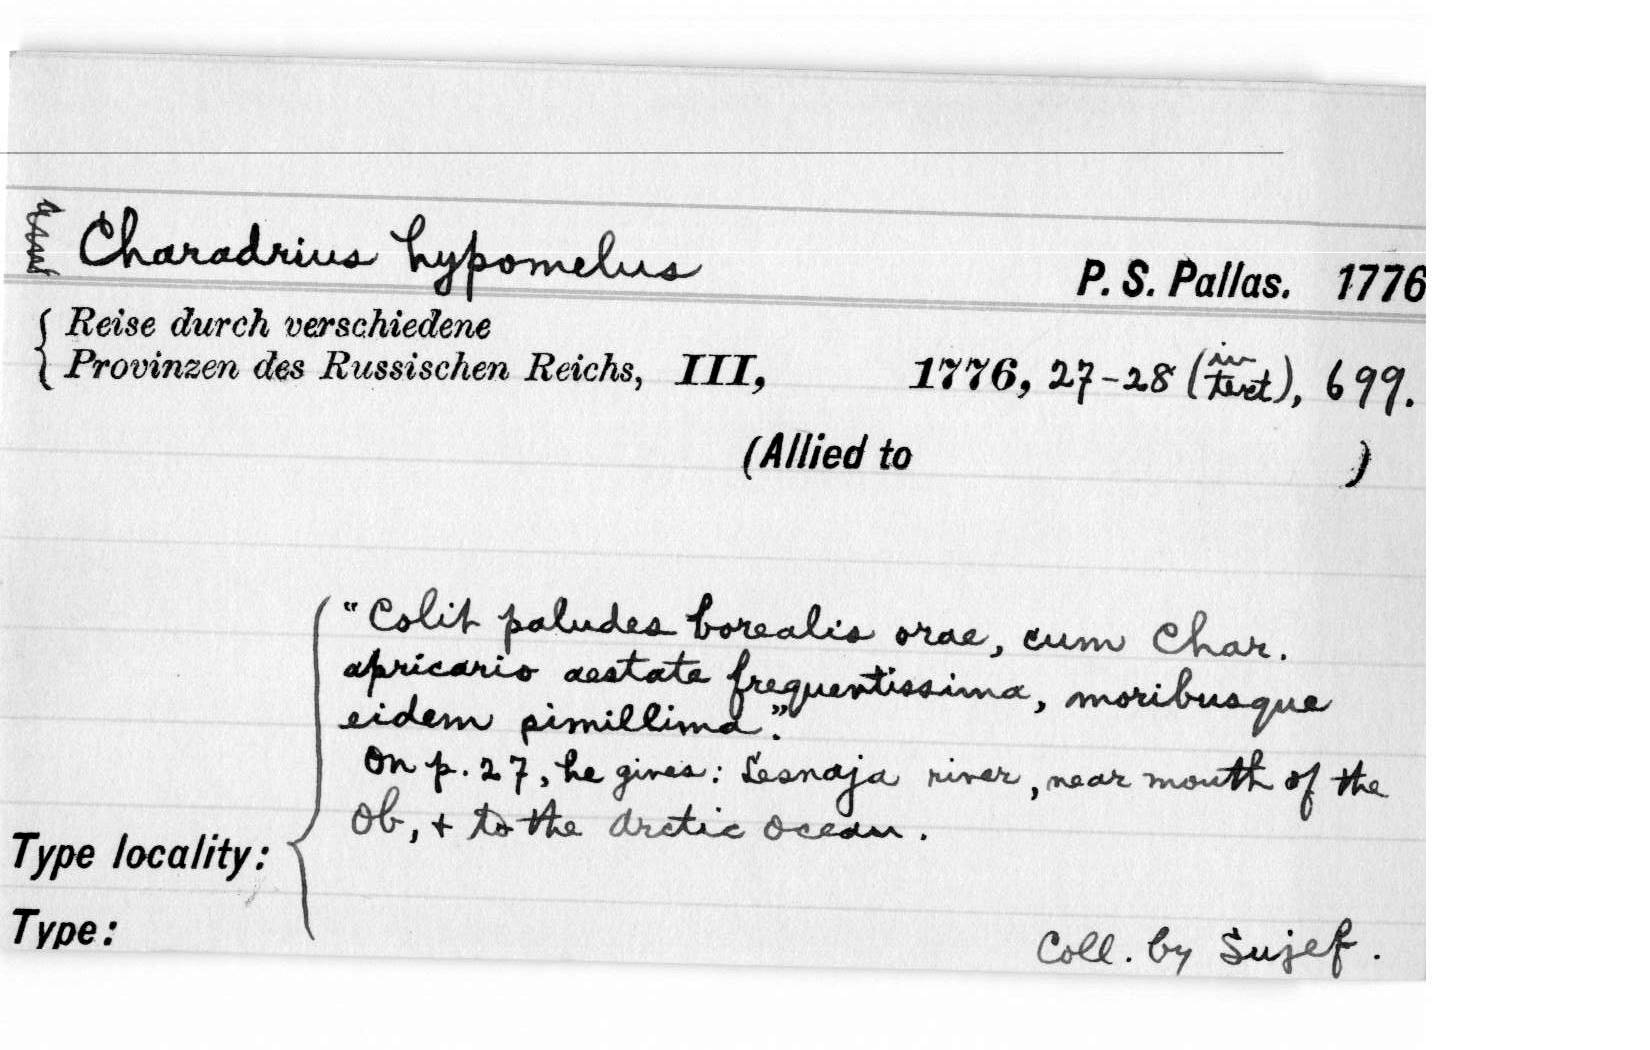 Charadrius hypomelus P. S. Pallas. 1776
Reise durch verschiedene
Provinzen des Russischen Reichs, III, 1776, 27-28 (in text), 699.
(Allied to )
"Colit paludes borealis orae, cum Char.
apricario aestate frequentissima, moribusque
eidem simillima."
On p. 27, he gives: Lesnaja river, near mouth of the
Ob, + to the Arctic Ocean.
Type locality:
Type:
Coll. by Sujef.